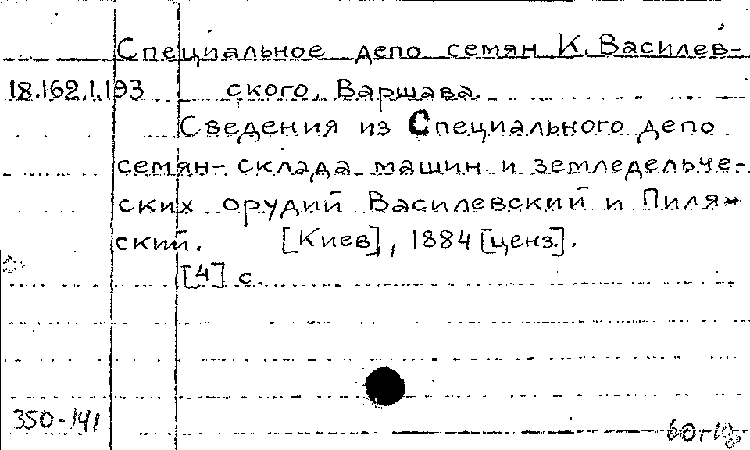 Специальное депо семян К. Василев-
18.162.1.193 ского, Варшава.
Сведения из Специального депо
семян-склада машин и земледельче-
ских орудий Василевский и Пиля-
ский. [Киев], 1884 [ценз.].
[4] с.
350-141